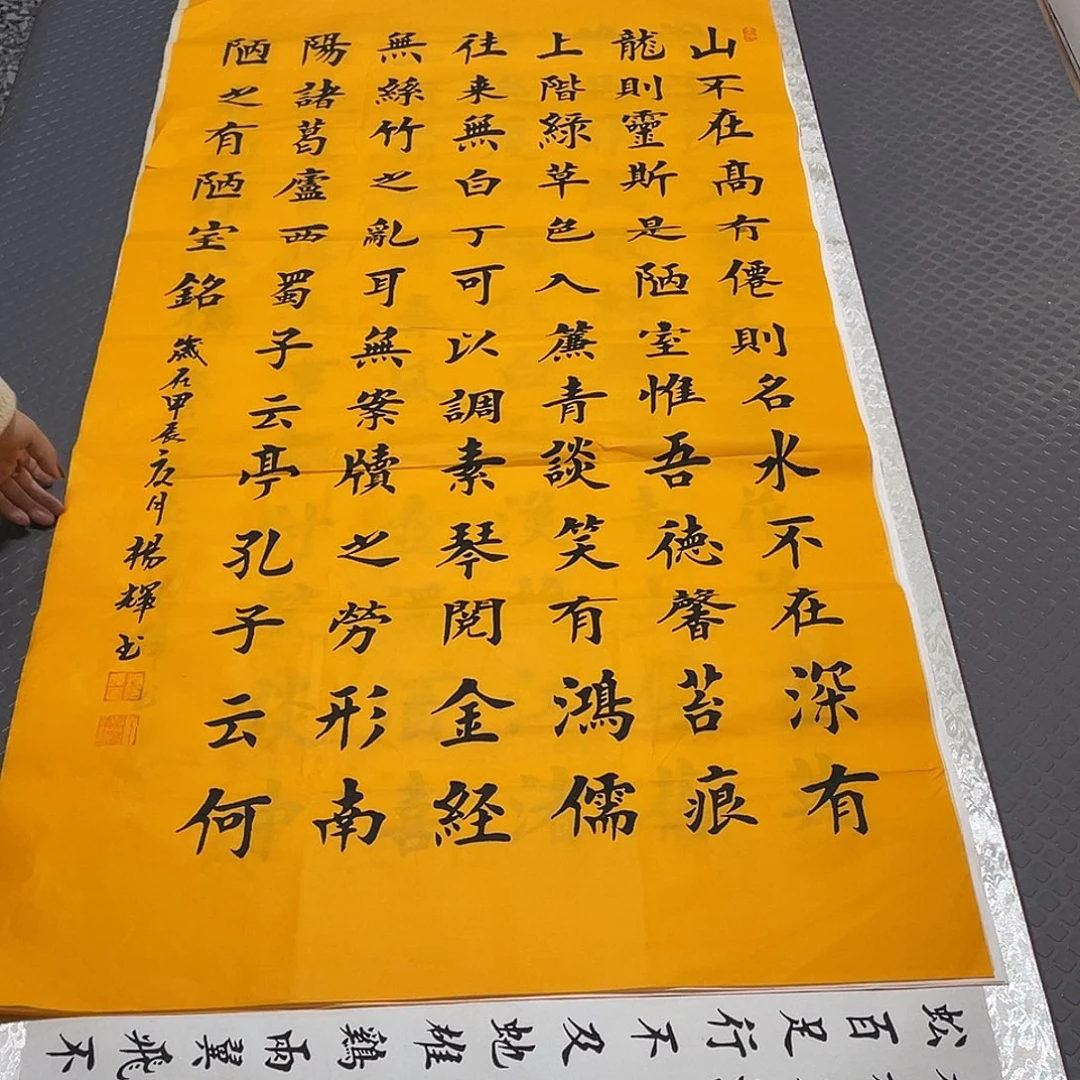 山不在髙有僊則名水不在深有
龍則靈斯是陋室惟吾德馨苔痕
上階緑草色入薕青談笑有鴻儒
往来無白丁可以調素琴閱金経
無絲竹之亂耳無案牘之勞形南
陽諸葛廬西蜀子云亭孔子云何
陋之有陋室銘
歲在甲辰夏月楊輝书
蚣百足行不及虵雄鷄兩翼飛不